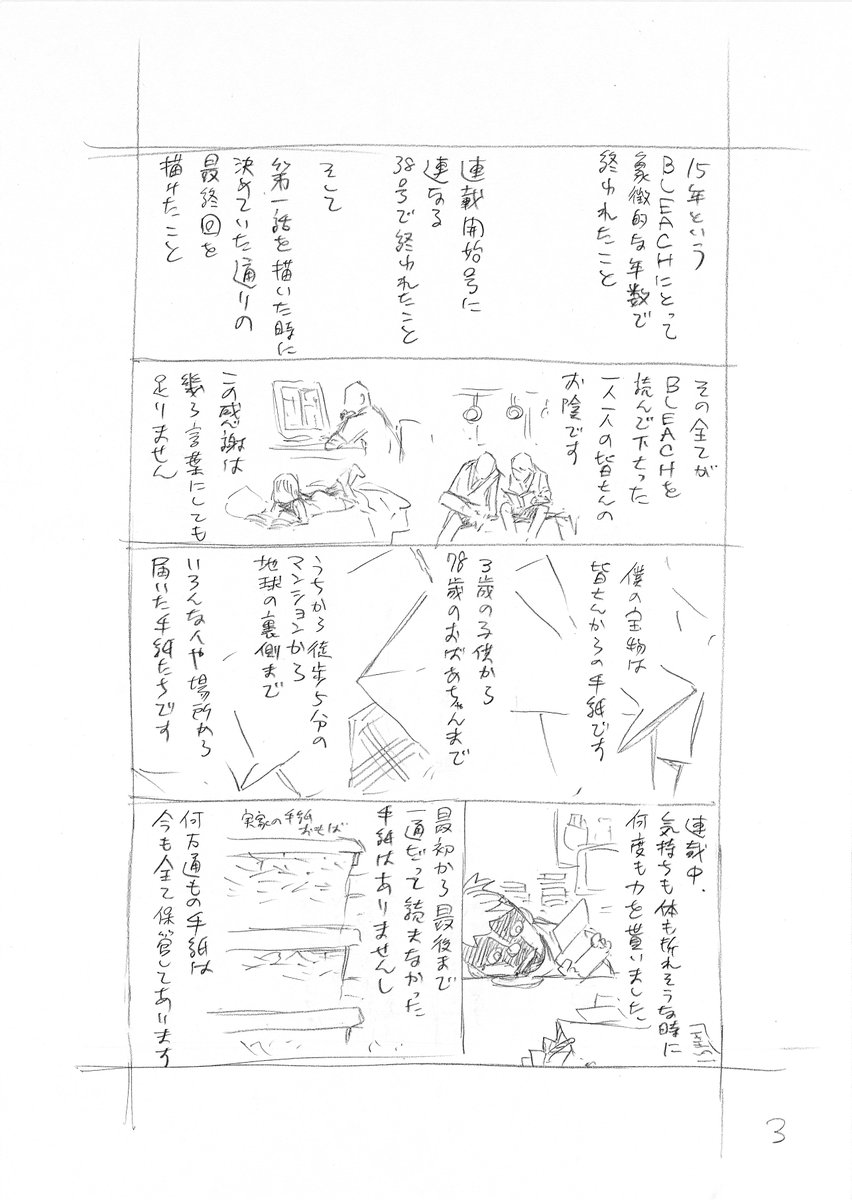 15年という
BLEACHにとって
象徴的な年数で
終われたこと
連載開始号に
連なる
38号で終われたこと
そして
第一話を描いた時に
決めていた通りの
最終回を
描けたこと
その全てが
BLEACHを
読んで下さった
一人一人の皆さんの
お陰です
この感謝は
幾ら言葉にしても
足りません
僕の宝物は
皆さんからの手紙です
3歳の子供から
78歳のおばあちゃんまで
うちから徒歩5分の
マンションから
地球の裏側まで
いろんな人や場所から
届いた手紙たちです
連載中、
気持ちも体も折れそうな時に
何度も力を貰いました
最初から最後まで
一通だって読まなかった
手紙はありませんし
実家の手紙
何万通もの手紙は
今も全て保管してあります
3